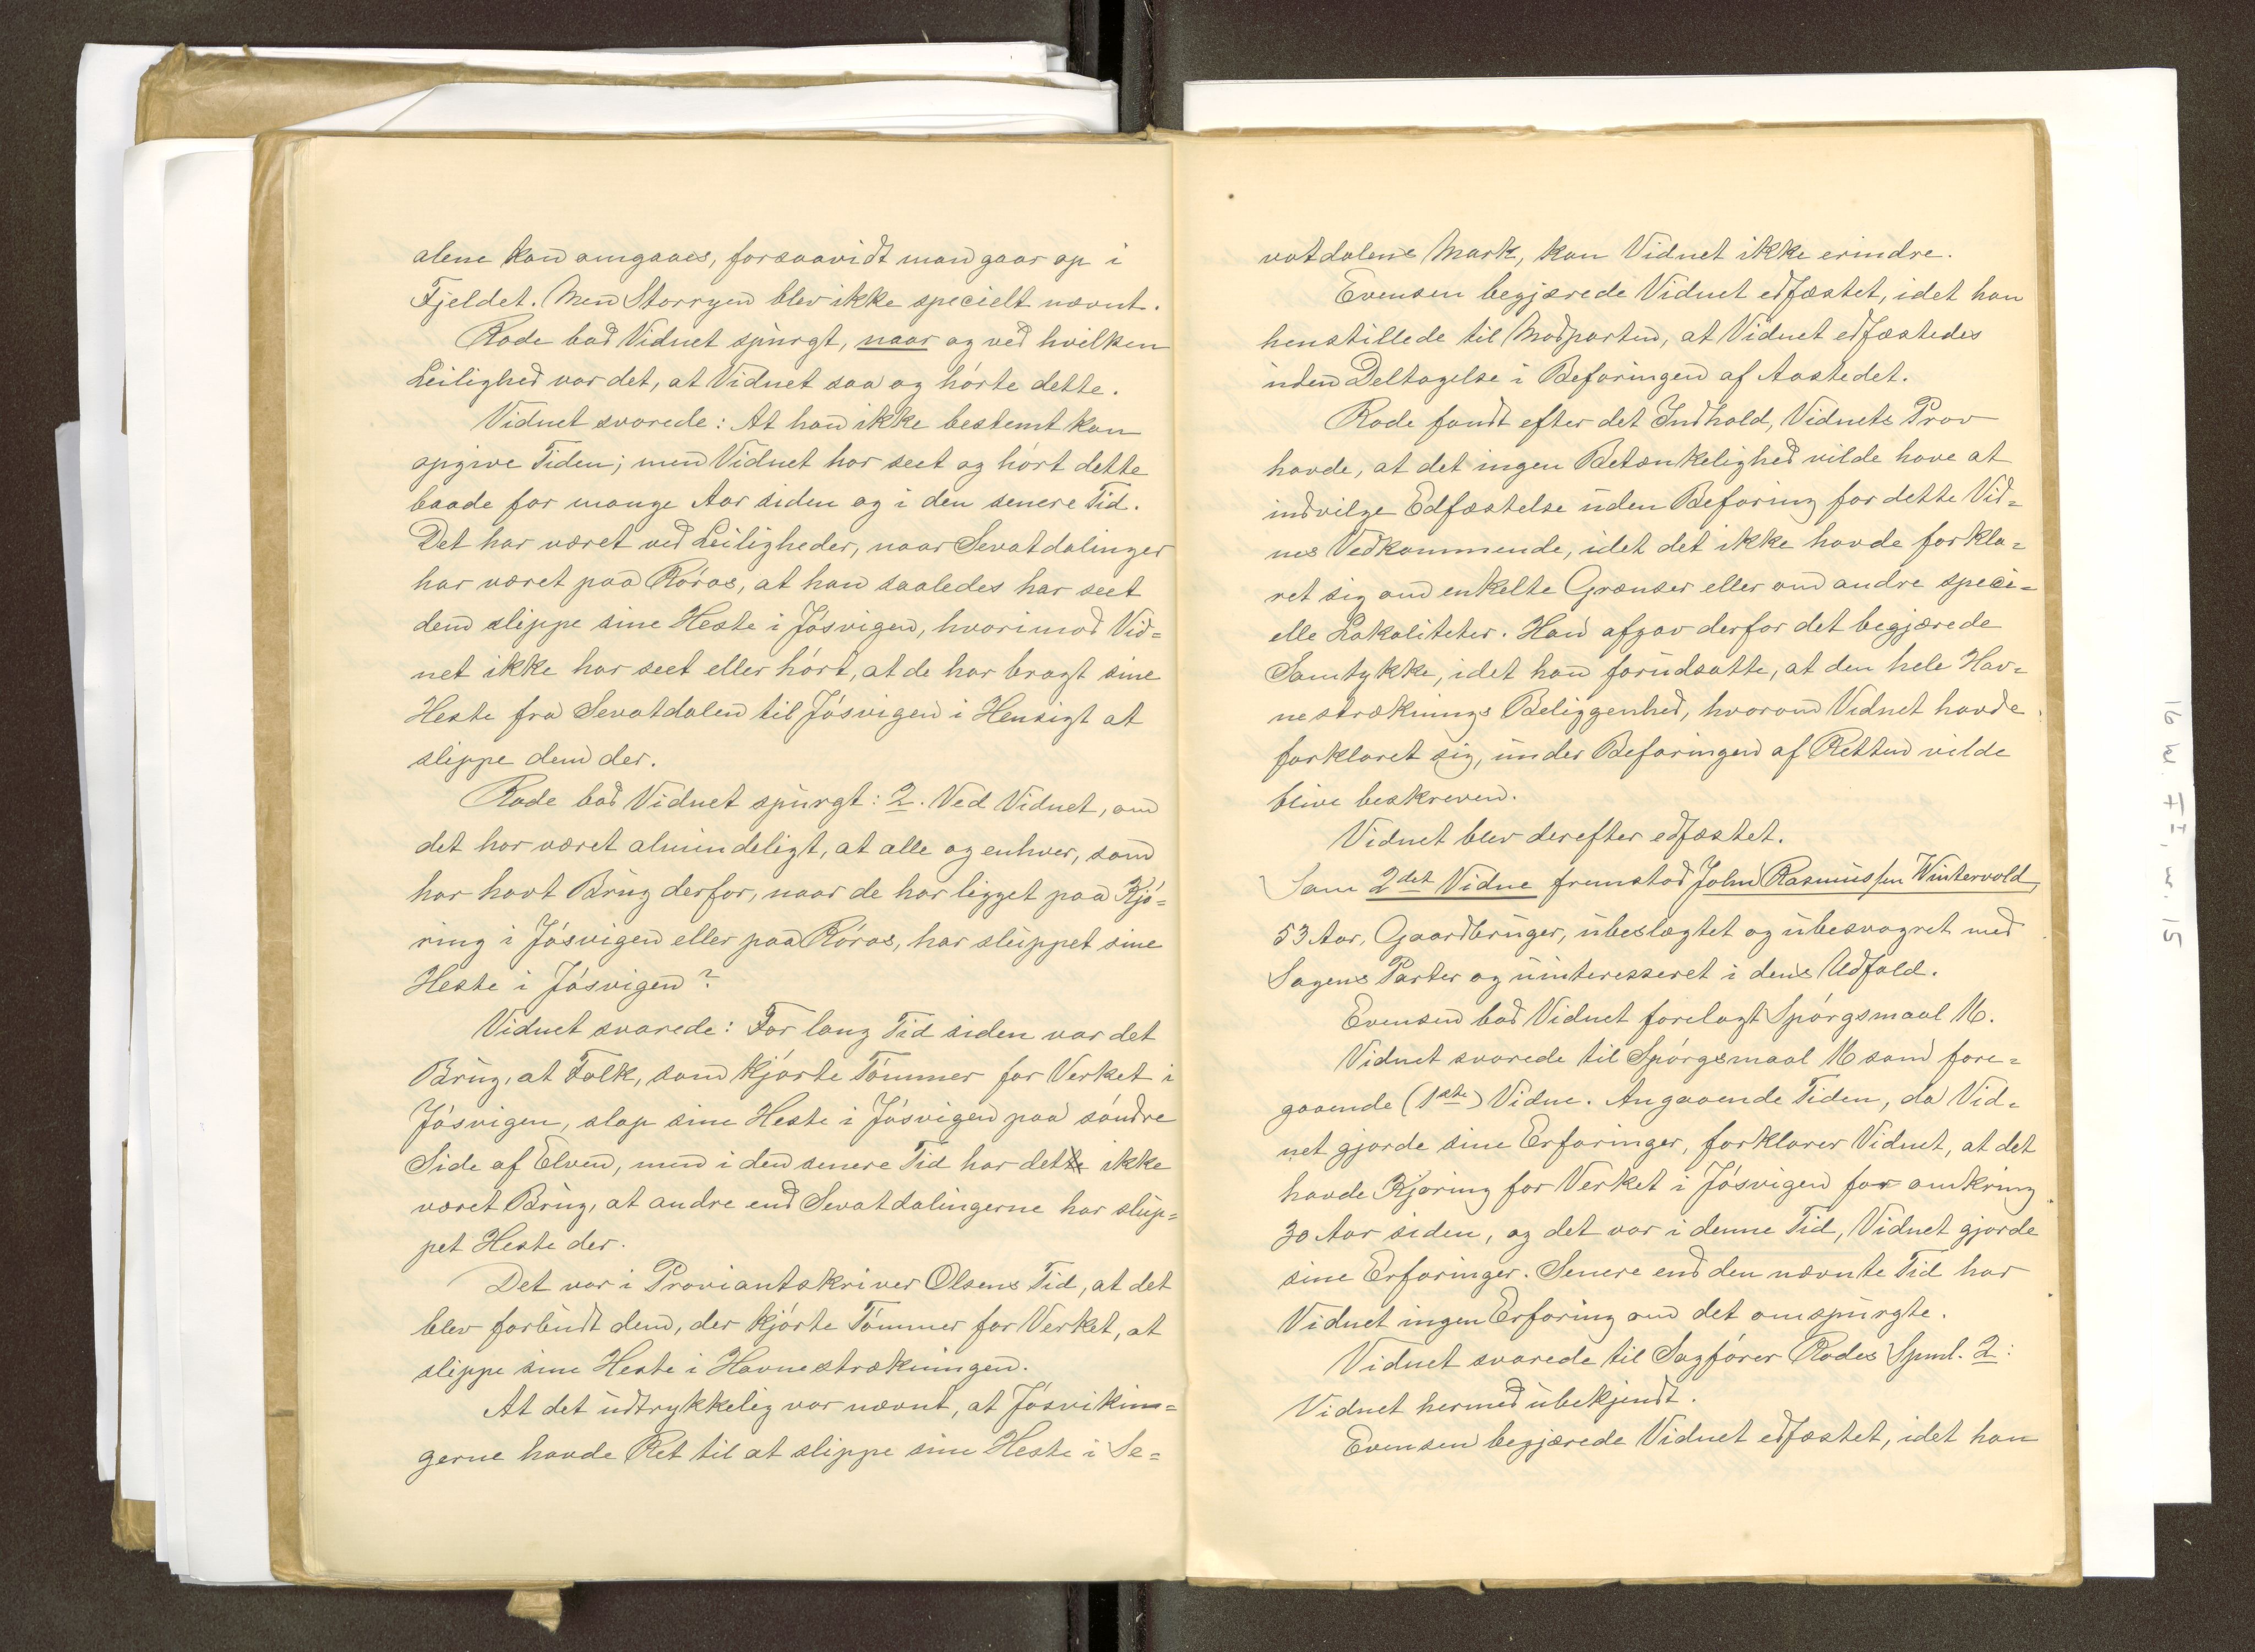 alene kan omgaaes, forsaavidt man gaar op i
Fjeldet. Men Storryen blev ikke specielt nævnt.
Rode bad Vidnet spurgt, naar og ved hvilken
Leilighed var det, at Vidnet saa og hørte dette.
Vidnet svarede: At han ikke bestemt kan
opgive Tiden; men Vidnet har seet og hørt dette
baade for mange Aar siden og i den senere Tid.
Det har været ved Leiligheder, naar Sevatdalinger
har været paa Røros, at han saaledes har seet
dem slippe sine Heste i Jøsvigen, hvorimod Vid=
net ikke har seet eller hørt, at de har bragt sine
Heste fra Sevatdalen til Jøsvigen i Hensigt at
slippe dem der.
Rode bad Vidnet spurgt: 2. Ved Vidnet, om
det har været almindeligt, at alle og enhver, som
har havt Brug derfor, naar de har ligget paa Kjø=
ring i Jøsvigen eller paa Røros, har sluppet sine
Heste i Jøsvigen?
Vidnet svarede: For lang Tid siden var det
Brug, at Folk, som kjørte Tømmer for Verket i
Jøsvigen, slap sine Heste i Jøsvigen paa søndre
Side af Elven, men i den senere Tid har det ikke
været Brug, at andre end Sevatdalingerne har slup=
pet Heste der.
Det var i Proviantskriver Olsens Tid, at det
blev forbudt dem, der kjørte Tømmer for Verket, at
slippe sine Heste i Havnestrækningen.
At det udtrykkelig var nævnt, at Jøsvikin=
gerne havde Ret til at slippe sine Heste i Se=
vatdalens Mark, kan Vidnet ikke erindre.
Evensen begjærede Vidnet edfæstet, idet han
henstillede til Modparten, at Vidnet edfæstedes
uden Deltagelse i Befaringen af Aastedet.
Rode fandt efter det Indhold, Vidnets Prov
havde, at det ingen Betænkelighed vilde have at
indvilge Edfæstelse uden Befaring for dette Vid=
nes Vedkommende, idet det ikke havde forkla=
ret sig om enkelte Grænser eller om andre speci=
elle Lokaliteter. Han afgav derfor det begjærede
Samtykke, idet han forudsatte, at den hele Hav=
nestræknings Beliggenhed, hvorom Vidnet havde
forklaret sig, under Befaringen af Retten vilde
blive beskreven.
Vidnet blev derefter edfæstet.
Som 2det Vidne fremstod John Rasmussen Wintervold,
53 Aar, Gaardbruger, ubeslægtet og ubesvogret med
Sagens Parter og uinteresseret i dens Udfald.
Evensen bad Vidnet forelagt Spørgsmaal 16.
Vidnet svarede til Spørgsmaal 16 som fore=
gaaende (1ste) Vidne. Angaaende Tiden, da Vid=
net gjorde sine Erfaringer, forklarer Vidnet, at det
havde Kjøring for Verket i Jøsvigen for omkring
30 Aar siden, og det var i denne Tid, Vidnet gjorde
sine Erfaringer. Senere end den nævnte Tid har
Vidnet ingen Erfaring om det omspurgte.
Vidnet svarede til Sagfører Rodes Spml. 2:
Vidnet hermed ubekjendt.
Evensen begjærede Vidnet edfæstet, idet han
16 w. II, w. 15